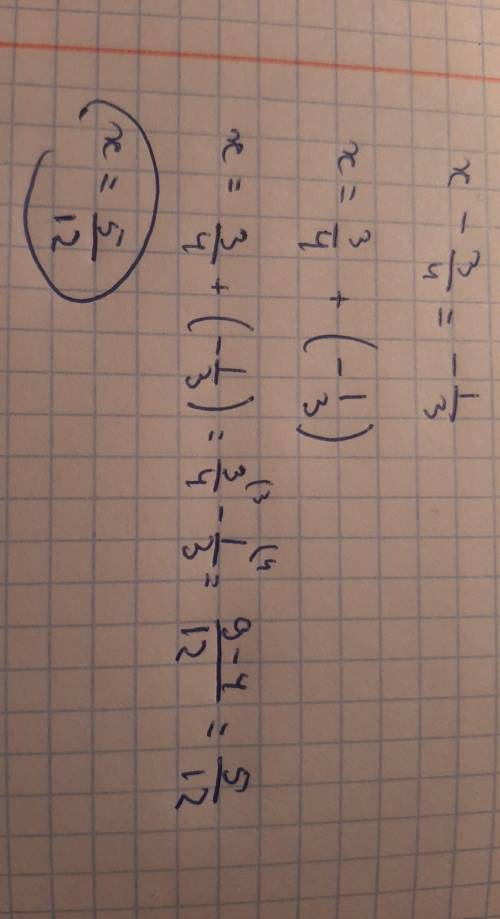 x - 3/4 = - 1/3
x = 3/4 + (- 1/3)
x = 3/4 + (- 1/3) = 3/4 (3 - 1/3 (4 = 9-4/12 = 5/12
x = 5/12